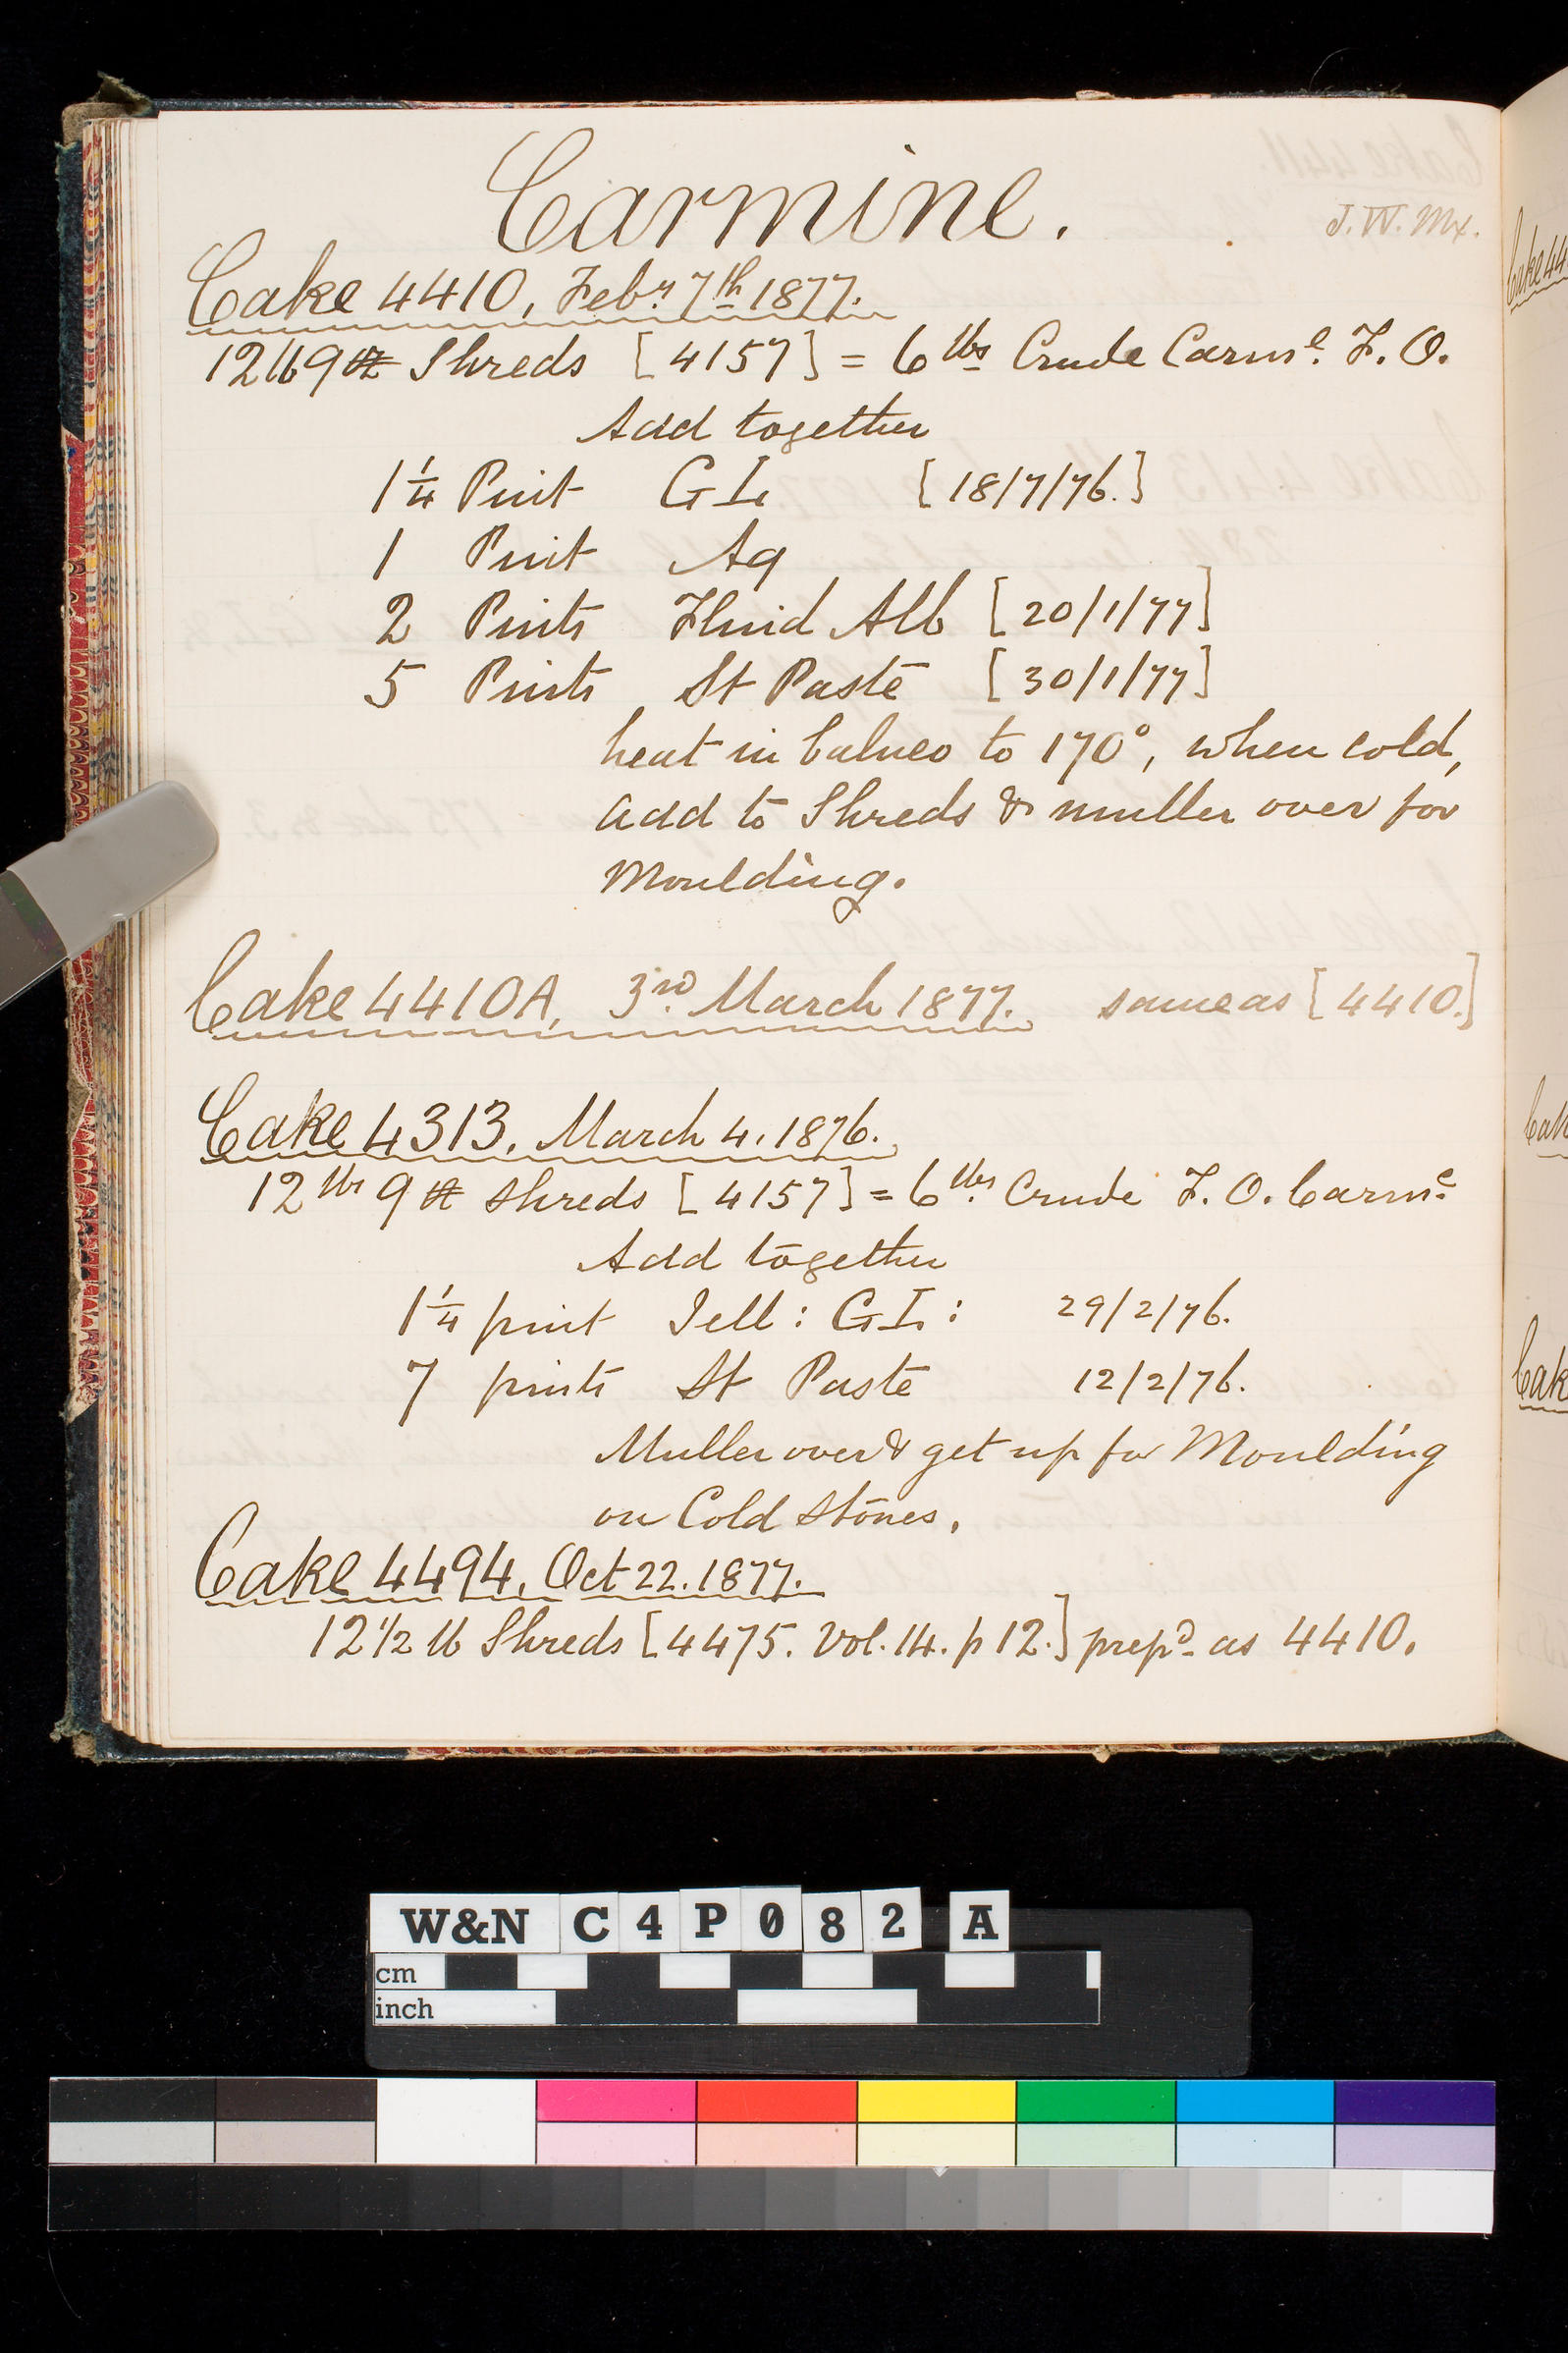 Carmine.
J. W. Mx.
Cake 4410, Feby 7th 1877.
12 lb 9 oz Shreds [4157] = 6 lbs Crude Carme. F. O.
Add together
1 1/4 Pint GL [18/7/76.]
1 Pint Aq
2 Pints Fluid Alb [20/1/77]
5 Pints St Paste [30/1/77]
heat in balneo to 170°, when cold,
add to Shreds & muller over for
Moulding.
Cake 4410A, 3rd March 1877. same as [4410.]
Cake 4313, March 4. 1876.
12 lbs 9 oz shreds [4157] = 6 lbs. Crude F. O. Carme
Add together
1 1/4 pint Jell: GL: 29/2/76.
7 pints St Paste 12/2/76.
Muller over & get up for Moulding
on Cold stones.
Cake 4494, Oct 22. 1877.
12 1/2 lb Shreds [4475. Vol. 14. p 12.] prepd as 4410.
W&N C4P082 A
cm
inch